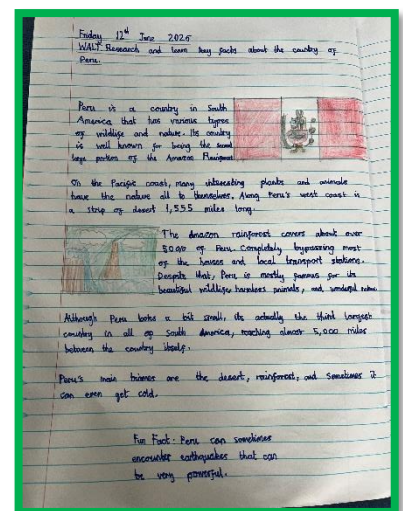 Friday 12th June 2026
WALT: Research and learn key facts about the country of
Peru.
Peru is a country in South
America that has various types
of wildlife and nature. Its country
is well known for being the second
large portion of the Amazon Rainforest
On the Pacific coast, many interesting plants and animals
have the nature all to themselves. Along Peru's west coast is
a strip of desert 1,555 miles long.
The Amazon rainforest covers about over
50% of Peru. Completely bypassing most
of the houses and local transport stations.
Despite that, Peru is mostly famous for its
beautiful wildlife, harmless animals, and wonderful nature.
Although Peru looks a bit small, its actually the third largest
country in all of South America, reaching almost 5,000 miles
between the country itself.
Peru's main biomes are the desert, rainforest, and sometimes it
can even get cold.
Fun Fact: Peru can sometimes
encounter earthquakes that can
be very powerful.